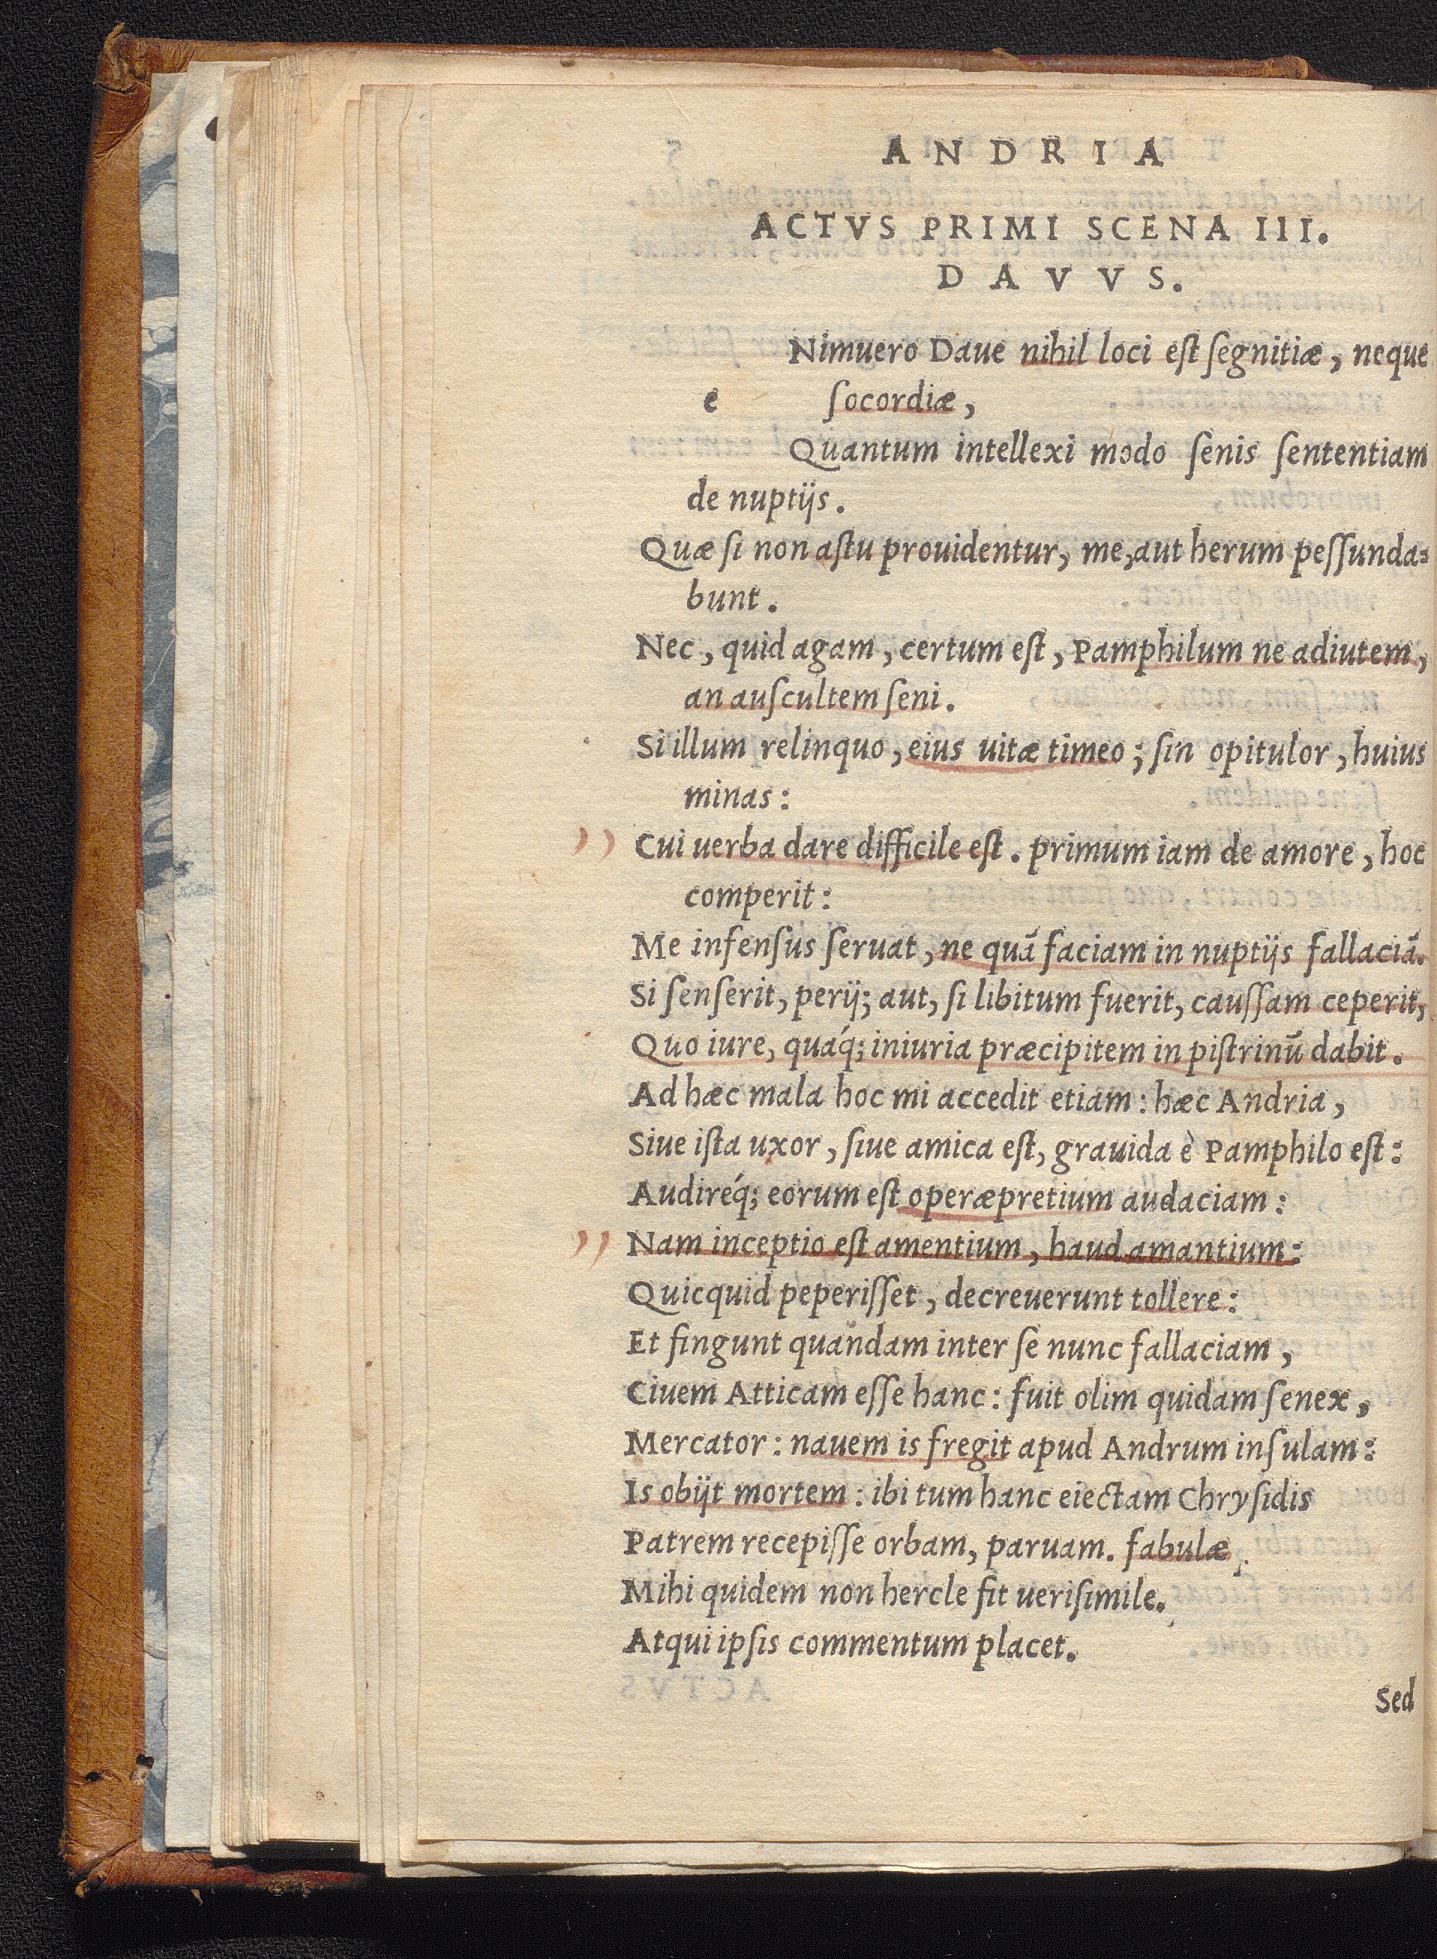 ANDRIA
ACTVS PRIMI SCENA III.
DAVVS.
Nimuero Daue nihil loci est segnitiæ, neque
e socordiæ,
Quantum intellexi modo senis sententiam
de nuptijs.
Quæ si non astu prouidentur, me, aut herum pessunda=
bunt.
Nec, quid agam, certum est, Pamphilum ne adiutem,
an auscultem seni.
Si illum relinquo, eius uitæ timeo; sin opitulor, huius
minas:
,, Cui uerba dare difficile est. primum iam de amore, hoc
comperit:
Me infensus seruat, ne quã faciam in nuptijs fallaciã.
Si senserit, perij; aut, si libitum fuerit, caussam ceperit,
Quo iure, quáq; iniuria præcipitem in pistrinũ dabit.
Ad hæc mala hoc mi accedit etiam: hæc Andria,
Siue ista uxor, siue amica est, grauida è Pamphilo est:
Audiréq; eorum est operæpretium audaciam:
,, Nam inceptio est amentium, haud amantium:
Quicquid peperisset, decreuerunt tollere:
Et fingunt quandam inter se nunc fallaciam,
Ciuem Atticam esse hanc: fuit olim quidam senex,
Mercator: nauem is fregit apud Andrum insulam:
Is obijt mortem: ibi tum hanc eiectam Chrysidis
Patrem recepisse orbam, paruam. fabulæ
Mihi quidem non hercle fit uerisimile.
Atqui ipsis commentum placet.
Sed